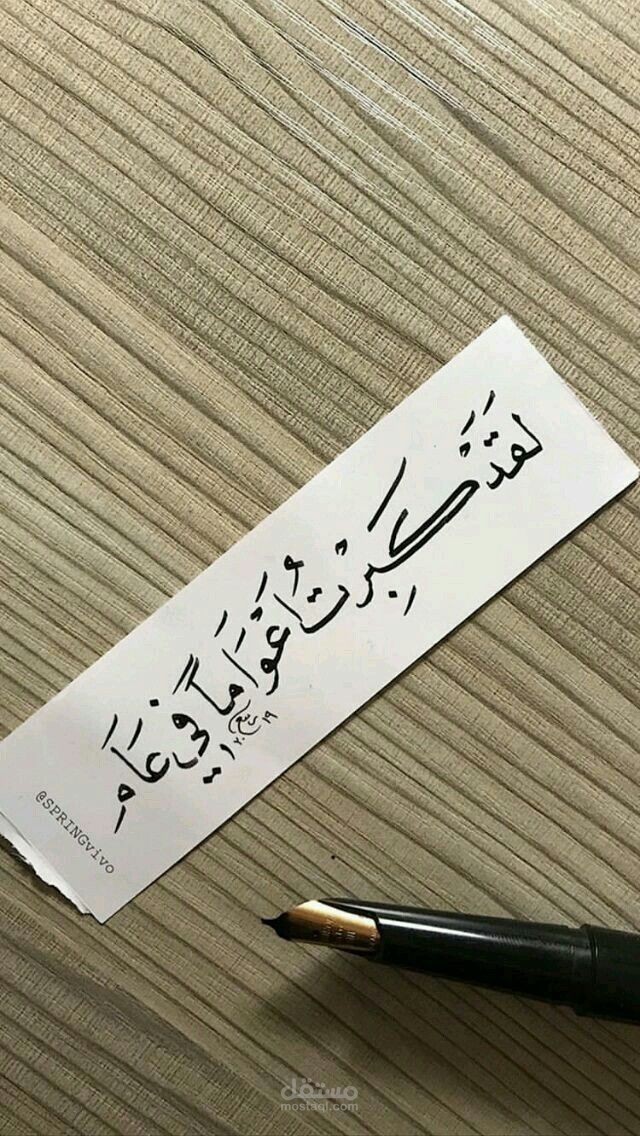 لَقَدْ كَبِرْتُ أَعْوَامًا فِي عَامْ
@SPRINGvivo
مستقل
mostaql.com